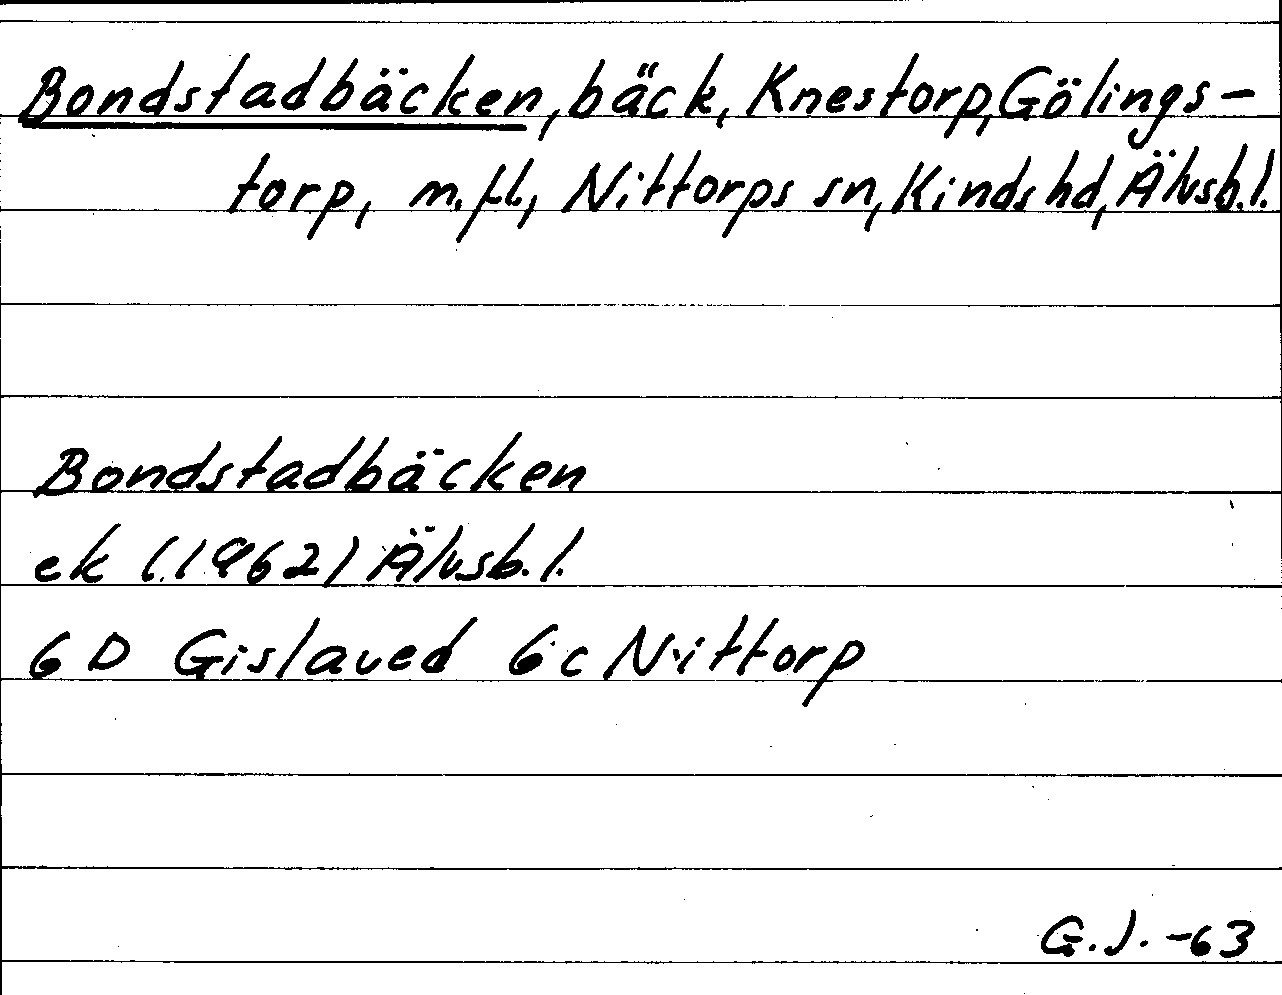 Bondstadbäcken, bäck, Knestorp, Gölings-
torp, m.fl., Nittorps sn, Kinds hd, Älvsb.l.
Bondstadbäcken
ek (1962) Älvsb.l.
6D Gislaved 6c Nittorp
G.J. -63